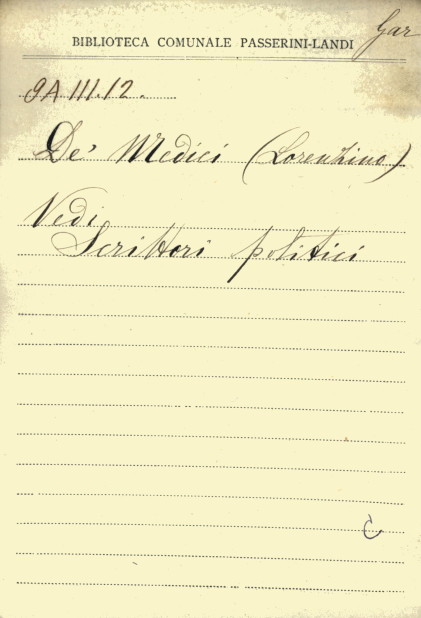 Gar
BIBLIOTECA COMUNALE PASSERINI-LANDI
9A III.12.
De' Medici (Lorenzino)
Vedi
Scrittori politici
C